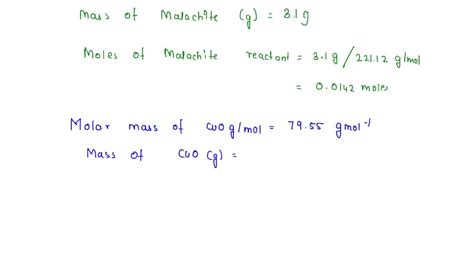 Mass of Malachite (g) = 3.1 g
Moles of Malachite reactant = 3.1 g / 221.12 g/mol
= 0.0142 moles
Molar mass of CuO g/mol = 79.55 gmol⁻¹
Mass of CuO (g) =